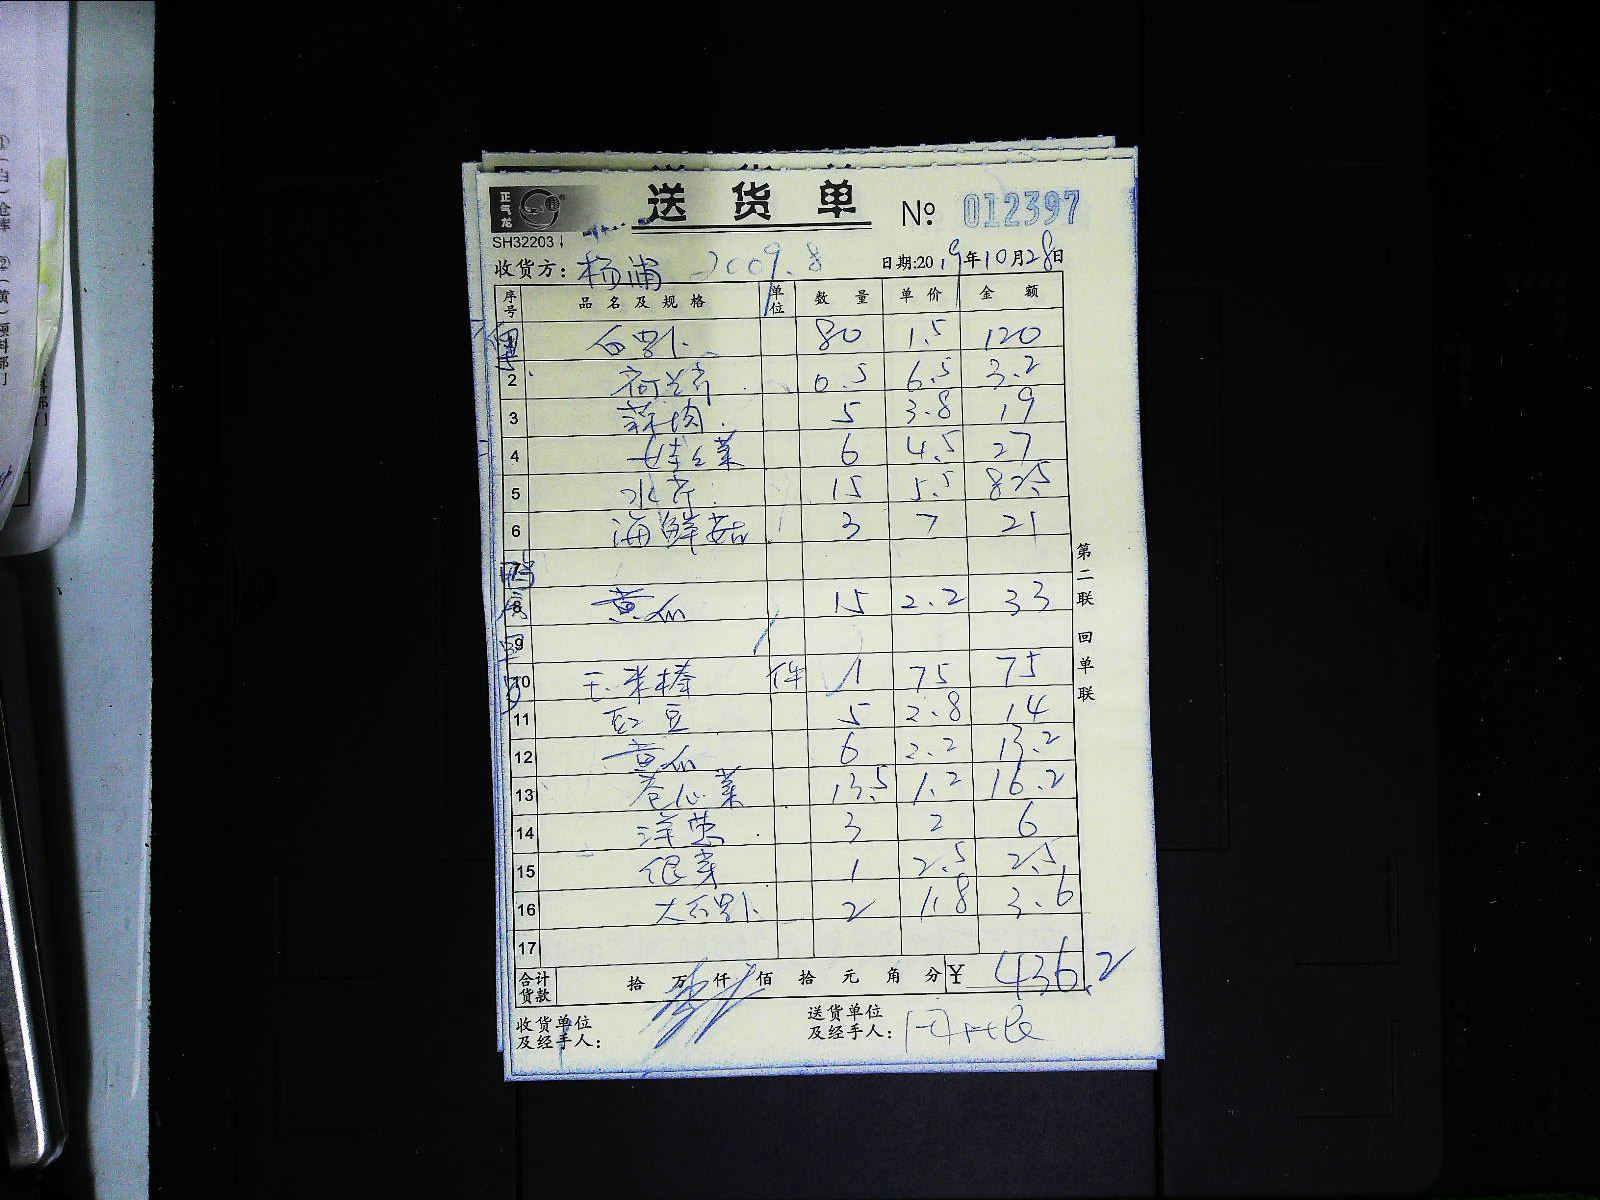 正气龙
送货单 № 012397
SH32203
收货方: 杨浦 2009.8 日期:2019年10月28日
序号 品名及规格 单位 数量 单价 金额
1 白萝卜 80 1.5 120
2 荷兰芹 0.5 6.5 3.2
3 蒜肉 5 3.8 19
4 娃娃菜 6 4.5 27
5 水芹 15 5.5 82.5
6 海鲜菇 3 7 21
7
8 黄瓜 15 2.2 33
9
10 玉米棒 件 1 75 75
11 豇豆 5 2.8 14
12 黄瓜 6 2.2 13.2
13 卷心菜 13.5 1.2 16.2
14 洋葱 3 2 6
15 银芽 1 2.5 2.5
16 大白萝卜 2 1.8 3.6
17
合计货款 拾 万 仟 佰 拾 元 角 分 ¥ 436.2
收货单位及经手人:
送货单位及经手人:
第二联 回单联